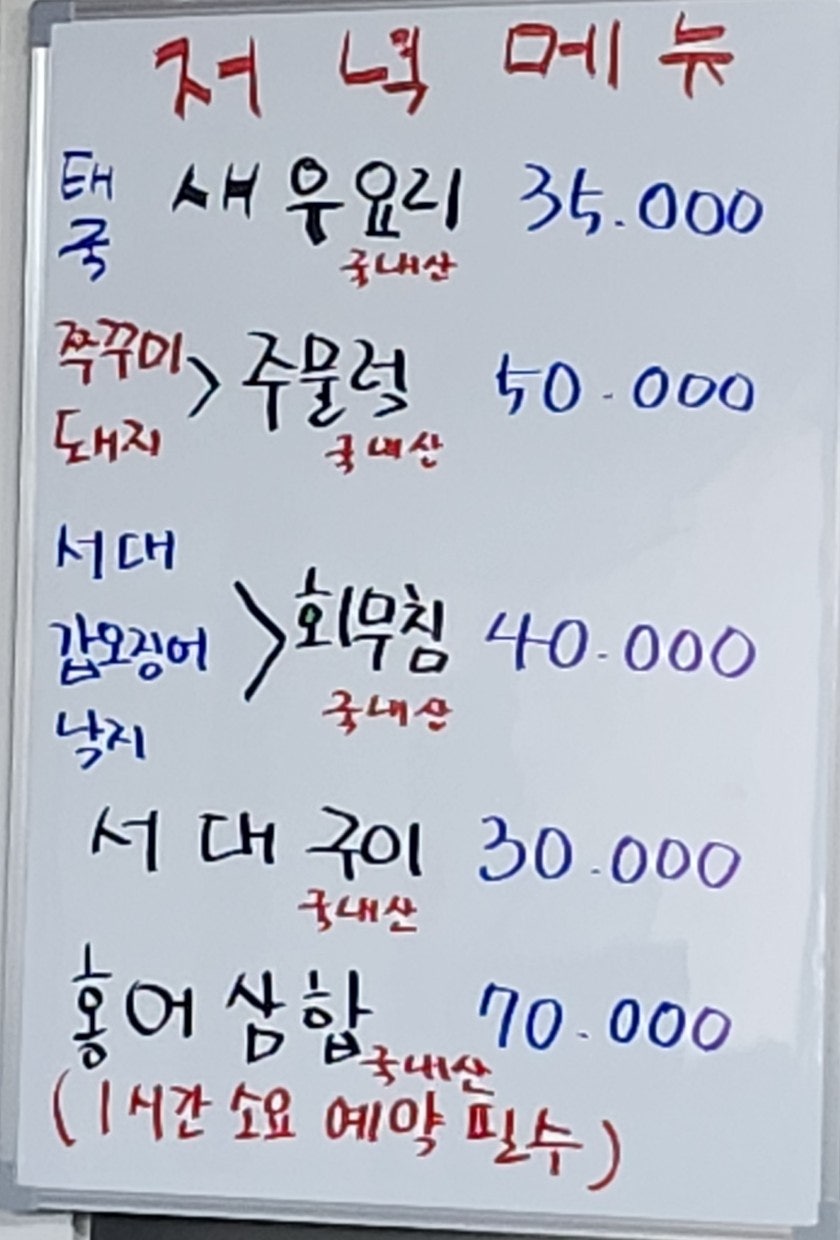 저녁메뉴
태국 새우요리 35.000
국내산
쭉꾸미
돼지 > 주물럭 50.000
국내산
서대
갑오징어 > 회무침 40.000
낙지
국내산
서대구이 30.000
국내산
홍어삼합 70.000
국내산
(1시간 소요 예약 필수)